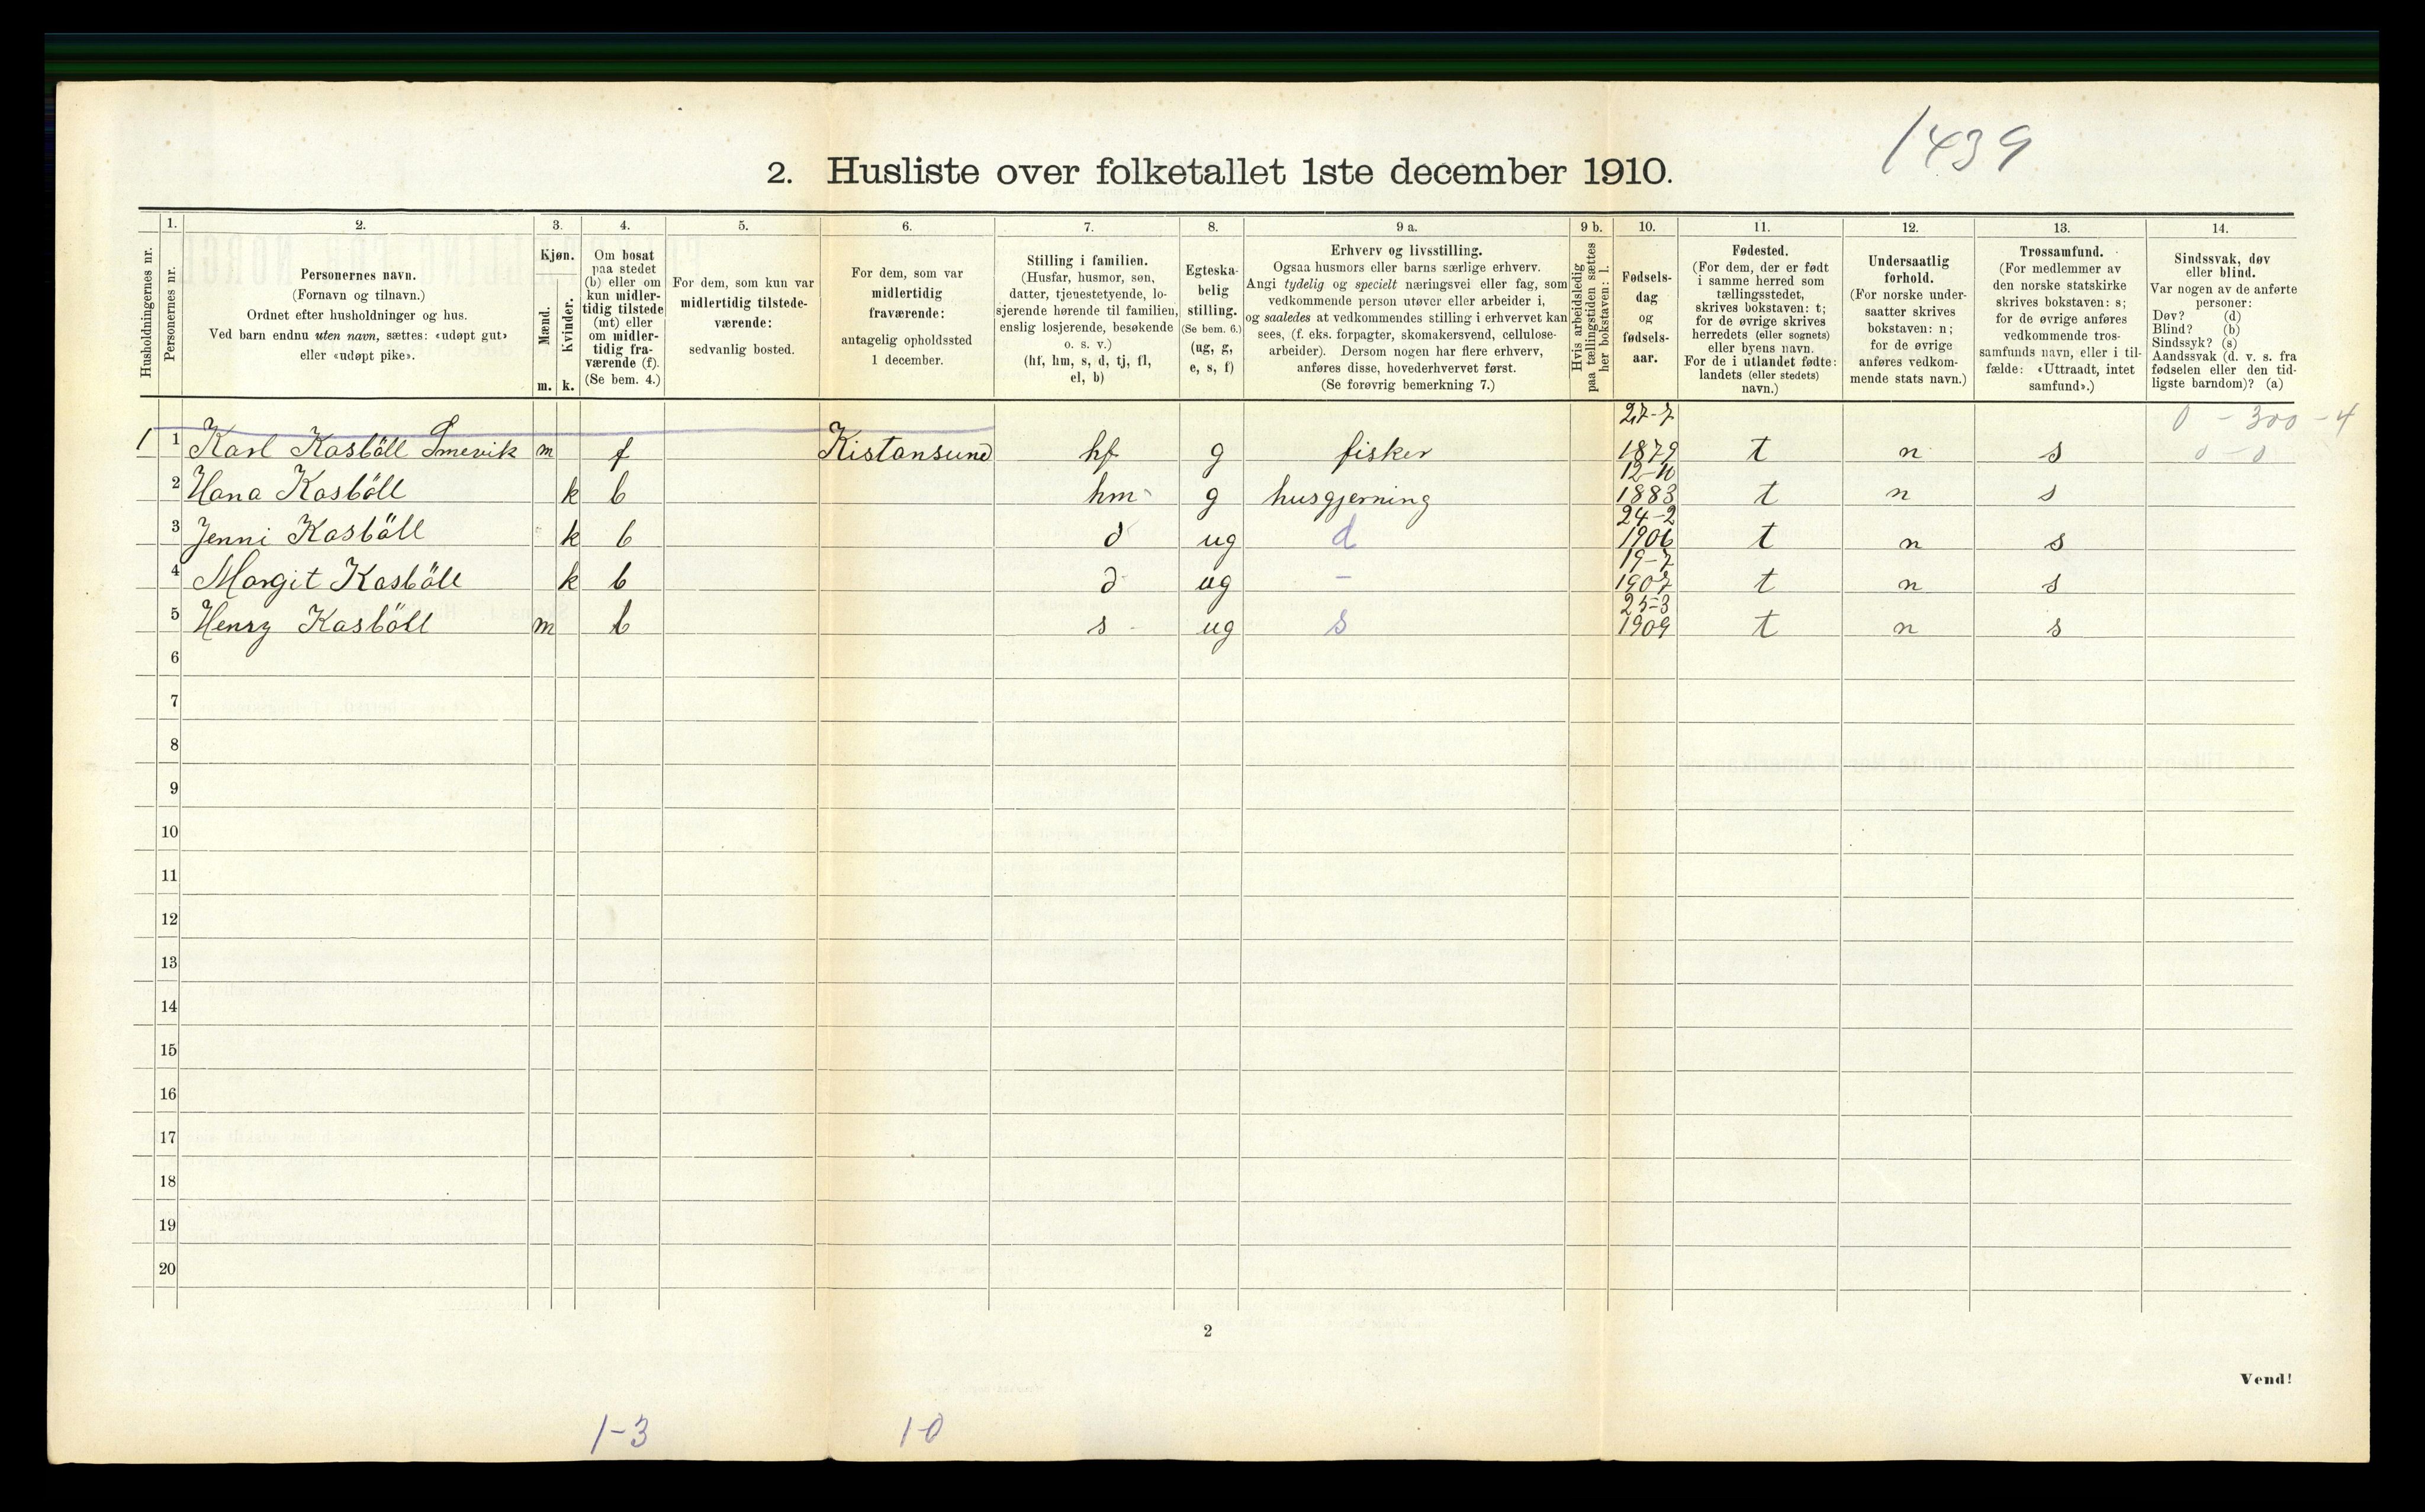 1439
2. Husliste over folketallet 1ste december 1910.
Husholdningernes nr.
1.
Personernes nr.
2.
Personernes navn.
(Fornavn og tilnavn.)
Ordnet efter husholdninger og hus.
Ved barn endnu uten navn, sættes: «udøpt gut»
eller «udøpt pike».
3.
Kjøn.
Mænd.
m.
Kvinder.
k.
4.
Om bosat
paa stedet
(b) eller om
kun midler-
tidig tilstede
(mt) eller
om midler-
tidig fra-
værende (f).
(Se bem. 4.)
5.
For dem, som kun var
midlertidig tilstede-
værende:
sedvanlig bosted.
6.
For dem, som var
midlertidig
fraværende:
antagelig opholdssted
1 december.
7.
Stilling i familien.
(Husfar, husmor, søn,
datter, tjenestetyende, lo-
sjerende hørende til familien,
enslig losjerende, besøkende
o. s. v.)
(hf, hm, s, d, tj, fl,
el, b)
8.
Egteska-
belig
stilling.
(Se bem. 6.)
(ug, g,
e, s, f)
9 a.
Erhverv og livsstilling.
Ogsaa husmors eller barns særlige erhverv.
Angi tydelig og specielt næringsvei eller fag, som
vedkommende person utøver eller arbeider i,
og saaledes at vedkommendes stilling i erhvervet kan
sees, (f. eks. forpagter, skomakersvend, cellulose-
arbeider). Dersom nogen har flere erhverv,
anføres disse, hovederhvervet først.
(Se forøvrig bemerkning 7.)
9 b.
Hvis arbeidsledig
paa tællingstiden sættes
her bokstaven: l.
10.
Fødsels-
dag
og
fødsels-
aar.
11.
Fødested.
(For dem, der er født
i samme herred som
tællingsstedet,
skrives bokstaven: t;
for de øvrige skrives
herredets (eller sognets)
eller byens navn.
For de i utlandet fødte:
landets (eller stedets)
navn.)
12.
Undersaatlig
forhold.
(For norske under-
saatter skrives
bokstaven: n;
for de øvrige
anføres vedkom-
mende stats navn.)
13.
Trossamfund.
(For medlemmer av
den norske statskirke
skrives bokstaven: s;
for de øvrige anføres
vedkommende tros-
samfunds navn, eller i til-
fælde: «Uttraadt, intet
samfund».)
14.
Sindssvak, døv
eller blind.
Var nogen av de anførte
personer:
Døv? (d)
Blind? (b)
Sindssyk? (s)
Aandssvak (d. v. s. fra
fødselen eller den tid-
ligste barndom)? (a)
0 - 300 - 4
0 - 0
1 1 Karl Kasböll Smevik m f Kistansund hf g fisker 27-7 1879 t n s
2 Hana Kasböll k b hm g husgjerning 12-11 1883 t n s
3 Jenni Kasböll k b d ug d 24-2 1906 t n s
4 Margit Kasböll k b d ug - 19-7 1907 t n s
5 Henry Kasböll m b s ug s 25-3 1909 t n s
6
7
8
9
10
11
12
13
14
15
16
17
18
19
20
2
Vend!
1-3
1-0